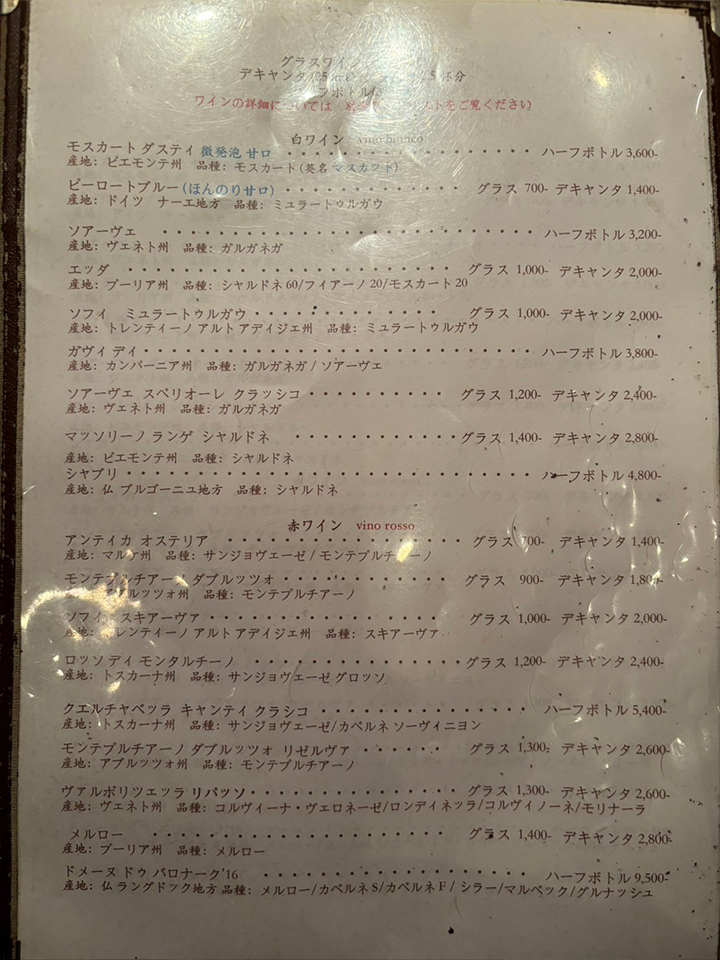 グラスワイン
デキャンタ
ワインの詳細については
トをご覧ください
白ワイン vino bianco
モスカート ダスティ 微発泡 甘口 ・・・・・・・・・・・・・・ ハーフボトル 3,600-
産地: ピエモンテ州 品種: モスカート (英名 マスカット)
ピーロートブルー (ほんのり甘口) ・・・・・・・・・・・ グラス 700- デキャンタ 1,400-
産地: ドイツ ナーエ地方 品種: ミュラートゥルガウ
ソアーヴェ ・・・・・・・・・・・・・・・・・・・・・・・・ ハーフボトル 3,200-
産地: ヴェネト州 品種: ガルガネガ
エッダ ・・・・・・・・・・・・・・・・・・・・ グラス 1,000- デキャンタ 2,000-
産地: プーリア州 品種: シャルドネ 60/フィアーノ 20/モスカート 20
ソフィ ミュラートゥルガウ ・・・・・・・・・ ・・・・ グラス 1,000- デキャンタ 2,000-
産地: トレンティーノ アルト アディジェ州 品種: ミュラートゥルガウ
ガヴィ ディ・・・・・・・・・・・・・・・・・・・・・・・・・ ハーフボトル 3,800-
産地: カンパーニア州 品種: ガルガネガ / ソアーヴェ
ソアーヴェ スペリオーレ クラッシコ・・・・・・・・・・・ グラス 1,200- デキャンタ 2,400-
産地: ヴェネト州 品種: ガルガネガ
マッソリーノ ランゲ シャルドネ ・・・・・・・・・・・グラス 1,400- デキャンタ 2,800-
産地: ピエモンテ州 品種: シャルドネ
シャブリ・・・・・・・・・・・・・・・・・・・・・・・・・・ ハーフボトル 4,800-
産地: 仏 ブルゴーニュ地方 品種: シャルドネ
赤ワイン vino rosso
アンティカ オステリア ・・・・・・・・・・・・・・・ グラス 700- デキャンタ 1,400-
産地: マルケ州 品種: サンジョヴェーゼ / モンテプルチアーノ
モンテプルチアーノ ダブルッツォ・・・・・・・・・・・ グラス 900- デキャンタ 1,800-
産地: アブルッツォ州 品種: モンテプルチアーノ
ソフィ スキアーヴァ・・・・・・・・・・・ ・・・・ グラス 1,000- デキャンタ 2,000-
産地: トレンティーノ アルト アディジェ州 品種: スキアーヴァ
ロッソ ディ モンタルチーノ ・・・・・・・・・・・・・グラス 1,200- デキャンタ 2,400-
産地: トスカーナ州 品種: サンジョヴェーゼ グロッソ
クエルチャベッラ キャンティ クラシコ ・・・・・・・・・・・・・ ハーフボトル 5,400-
産地: トスカーナ州 品種: サンジョヴェーゼ/カベルネ ソーヴィニヨン
モンテプルチアーノ ダブルッツォ リゼルヴァ ・・・・・・ グラス 1,300- デキャンタ 2,600-
産地: アブルッツォ州 品種: モンテプルチアーノ
ヴァルポリツエッラ リパッソ・・・・・・・・・・・・・グラス 1,300- デキャンタ 2,600-
産地: ヴェネト州 品種: コルヴィーナ・ヴェロネーゼ/ロンディネッラ/コルヴィノーネ/モリナーラ
メルロー ・・・・・・・・・・・・・・・・・・ グラス 1,400- デキャンタ 2,800-
産地: プーリア州 品種: メルロー
ドメーヌ ドゥ バロナーク'16 ・・・・・・・・・・・・・・・・・ ハーフボトル 9,500-
産地: 仏 ラングドック地方 品種: メルロー/カベルネ S/カベルネ F / シラー/マルベック/グルナッシュ